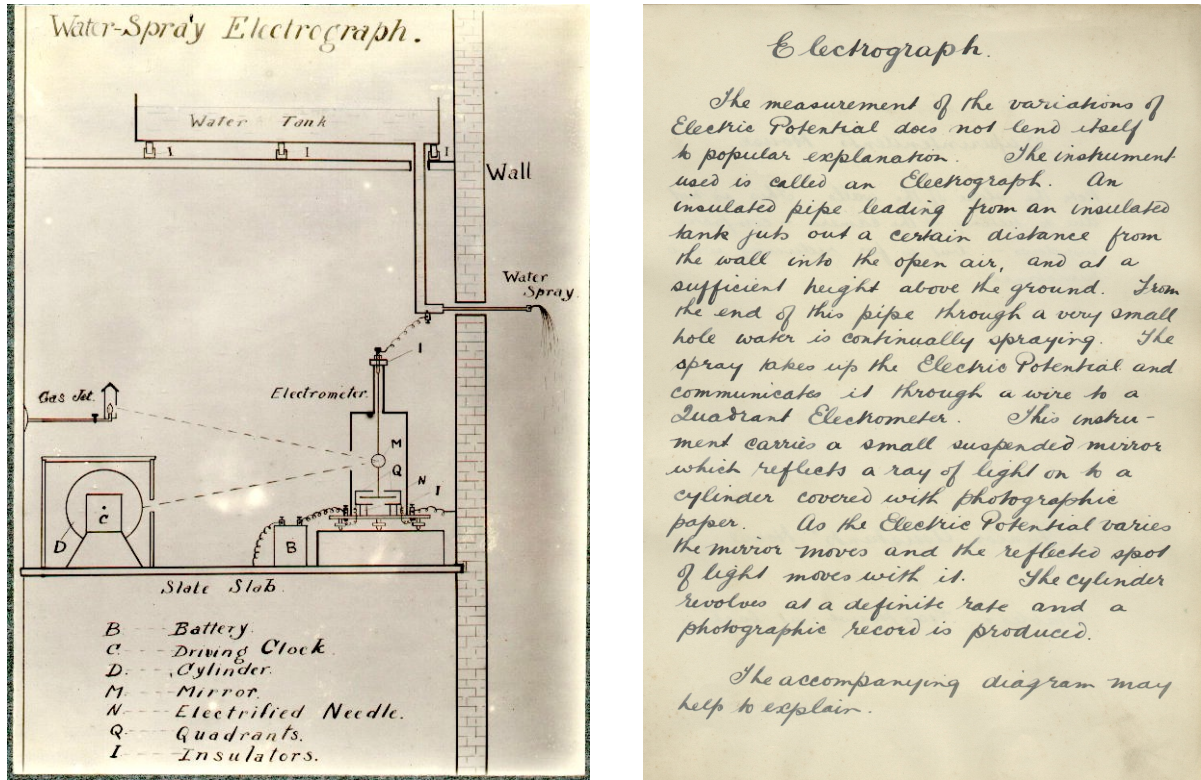 Water-Spray Electrograph.
Water Tank
I
I
I
Wall
Water
Spray.
I
Electrometer.
Gas Jet.
M
Q
N
I
C
D
B
Slate Slab.
B --- Battery.
C --- Driving Clock.
D. --- Cylinder.
M --- Mirror.
N --- Electrified Needle.
Q --- Quadrants.
I --- Insulators.
Electrograph.
The measurement of the variations of
Electric Potential does not lend itself
to popular explanation. The instrument
used is called an Electrograph. An
insulated pipe leading from an insulated
tank juts out a certain distance from
the wall into the open air, and at a
sufficient height above the ground. From
the end of this pipe through a very small
hole water is continually spraying. The
spray takes up the Electric Potential and
communicates it through a wire to a
Quadrant Electrometer. This instru-
ment carries a small suspended mirror
which reflects a ray of light on to a
cylinder covered with photographic
paper. As the Electric Potential varies
the mirror moves and the reflected spot
of light moves with it. The cylinder
revolves at a definite rate and a
photographic record is produced.
The accompanying diagram may
help to explain.